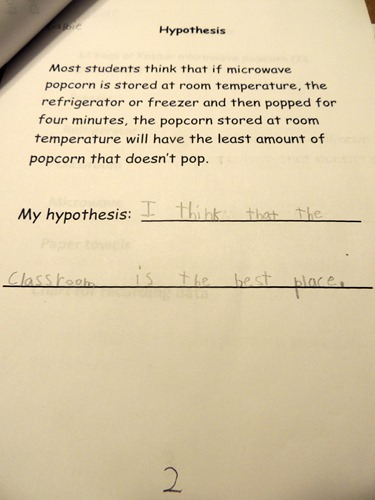 Hypothesis
Most students think that if microwave
popcorn is stored at room temperature, the
refrigerator or freezer and then popped for
four minutes, the popcorn stored at room
temperature will have the least amount of
popcorn that doesn't pop.
My hypothesis: I think that the
classroom is the best place.
Microwave
Paper towels
Chart for recording data
2